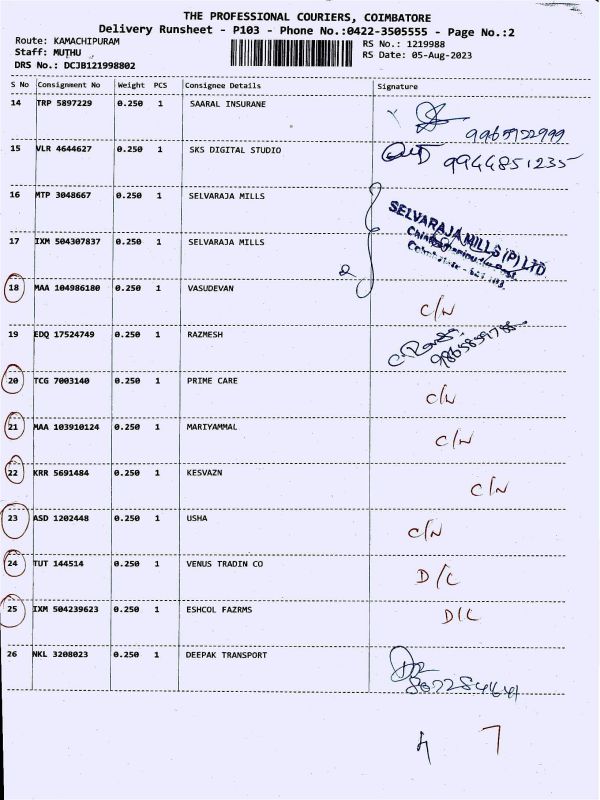 THE PROFESSIONAL COURIERS, COIMBATORE
Delivery Runsheet - P103 - Phone No.:0422-3505555 - Page No.:2
Route: KAMACHIPURAM
RS No.: 1219988
Staff: MUTHU
RS Date: 05-Aug-2023
DRS No.: DCJB121998802
S No Consignment No Weight PCS Consignee Details Signature
14 TRP 5897229 0.250 1 SAARAL INSURANE
9965922999
15 VLR 4644627 0.250 1 SKS DIGITAL STUDIO 9944851235
16 MTP 3048667 0.250 1 SELVARAJA MILLS
SELVARAJA MILLS (P) LTD
17 IXM 504307837 0.250 1 SELVARAJA MILLS
18 MAA 104986180 0.250 1 VASUDEVAN C/N
19 EDQ 17524749 0.250 1 RAZMESH
20 TCG 7003140 0.250 1 PRIME CARE C/N
21 MAA 103910124 0.250 1 MARIYAMMAL C/N
22 KRR 5691484 0.250 1 KESVAZN C/N
23 ASD 1202448 0.250 1 USHA C/N
24 TUT 144514 0.250 1 VENUS TRADIN CO D/L
25 IXM 504239623 0.250 1 ESHCOL FAZRMS D/L
26 NKL 3208023 0.250 1 DEEPAK TRANSPORT
7